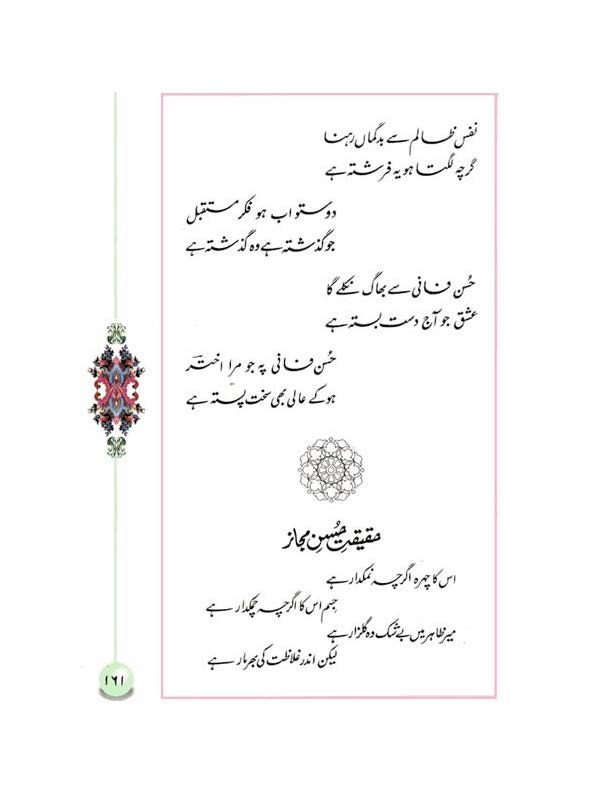 نفس ظالم سے بدگماں رہنا
گرچہ لگتا ہو یہ فرشتہ ہے
دوستو اب ہو فکر مستقبل
جو گذشتہ ہے وہ گذشتہ ہے
حُسن فانی سے بھاگ نکلے گا
عشق جو آج دست بستہ ہے
حُسن فانی پہ جو مرا اخترؔ
ہو کے عالی بھی سخت پستہ ہے
حقیقتِ حُسنِ مجاز
اس کا چہرہ اگرچہ نمکدار ہے
جسم اس کا اگرچہ چمکدار ہے
میر ظاہر میں بے شک وہ گلزار ہے
لیکن اندر غلاظت کی بھرمار ہے
۱۶۱